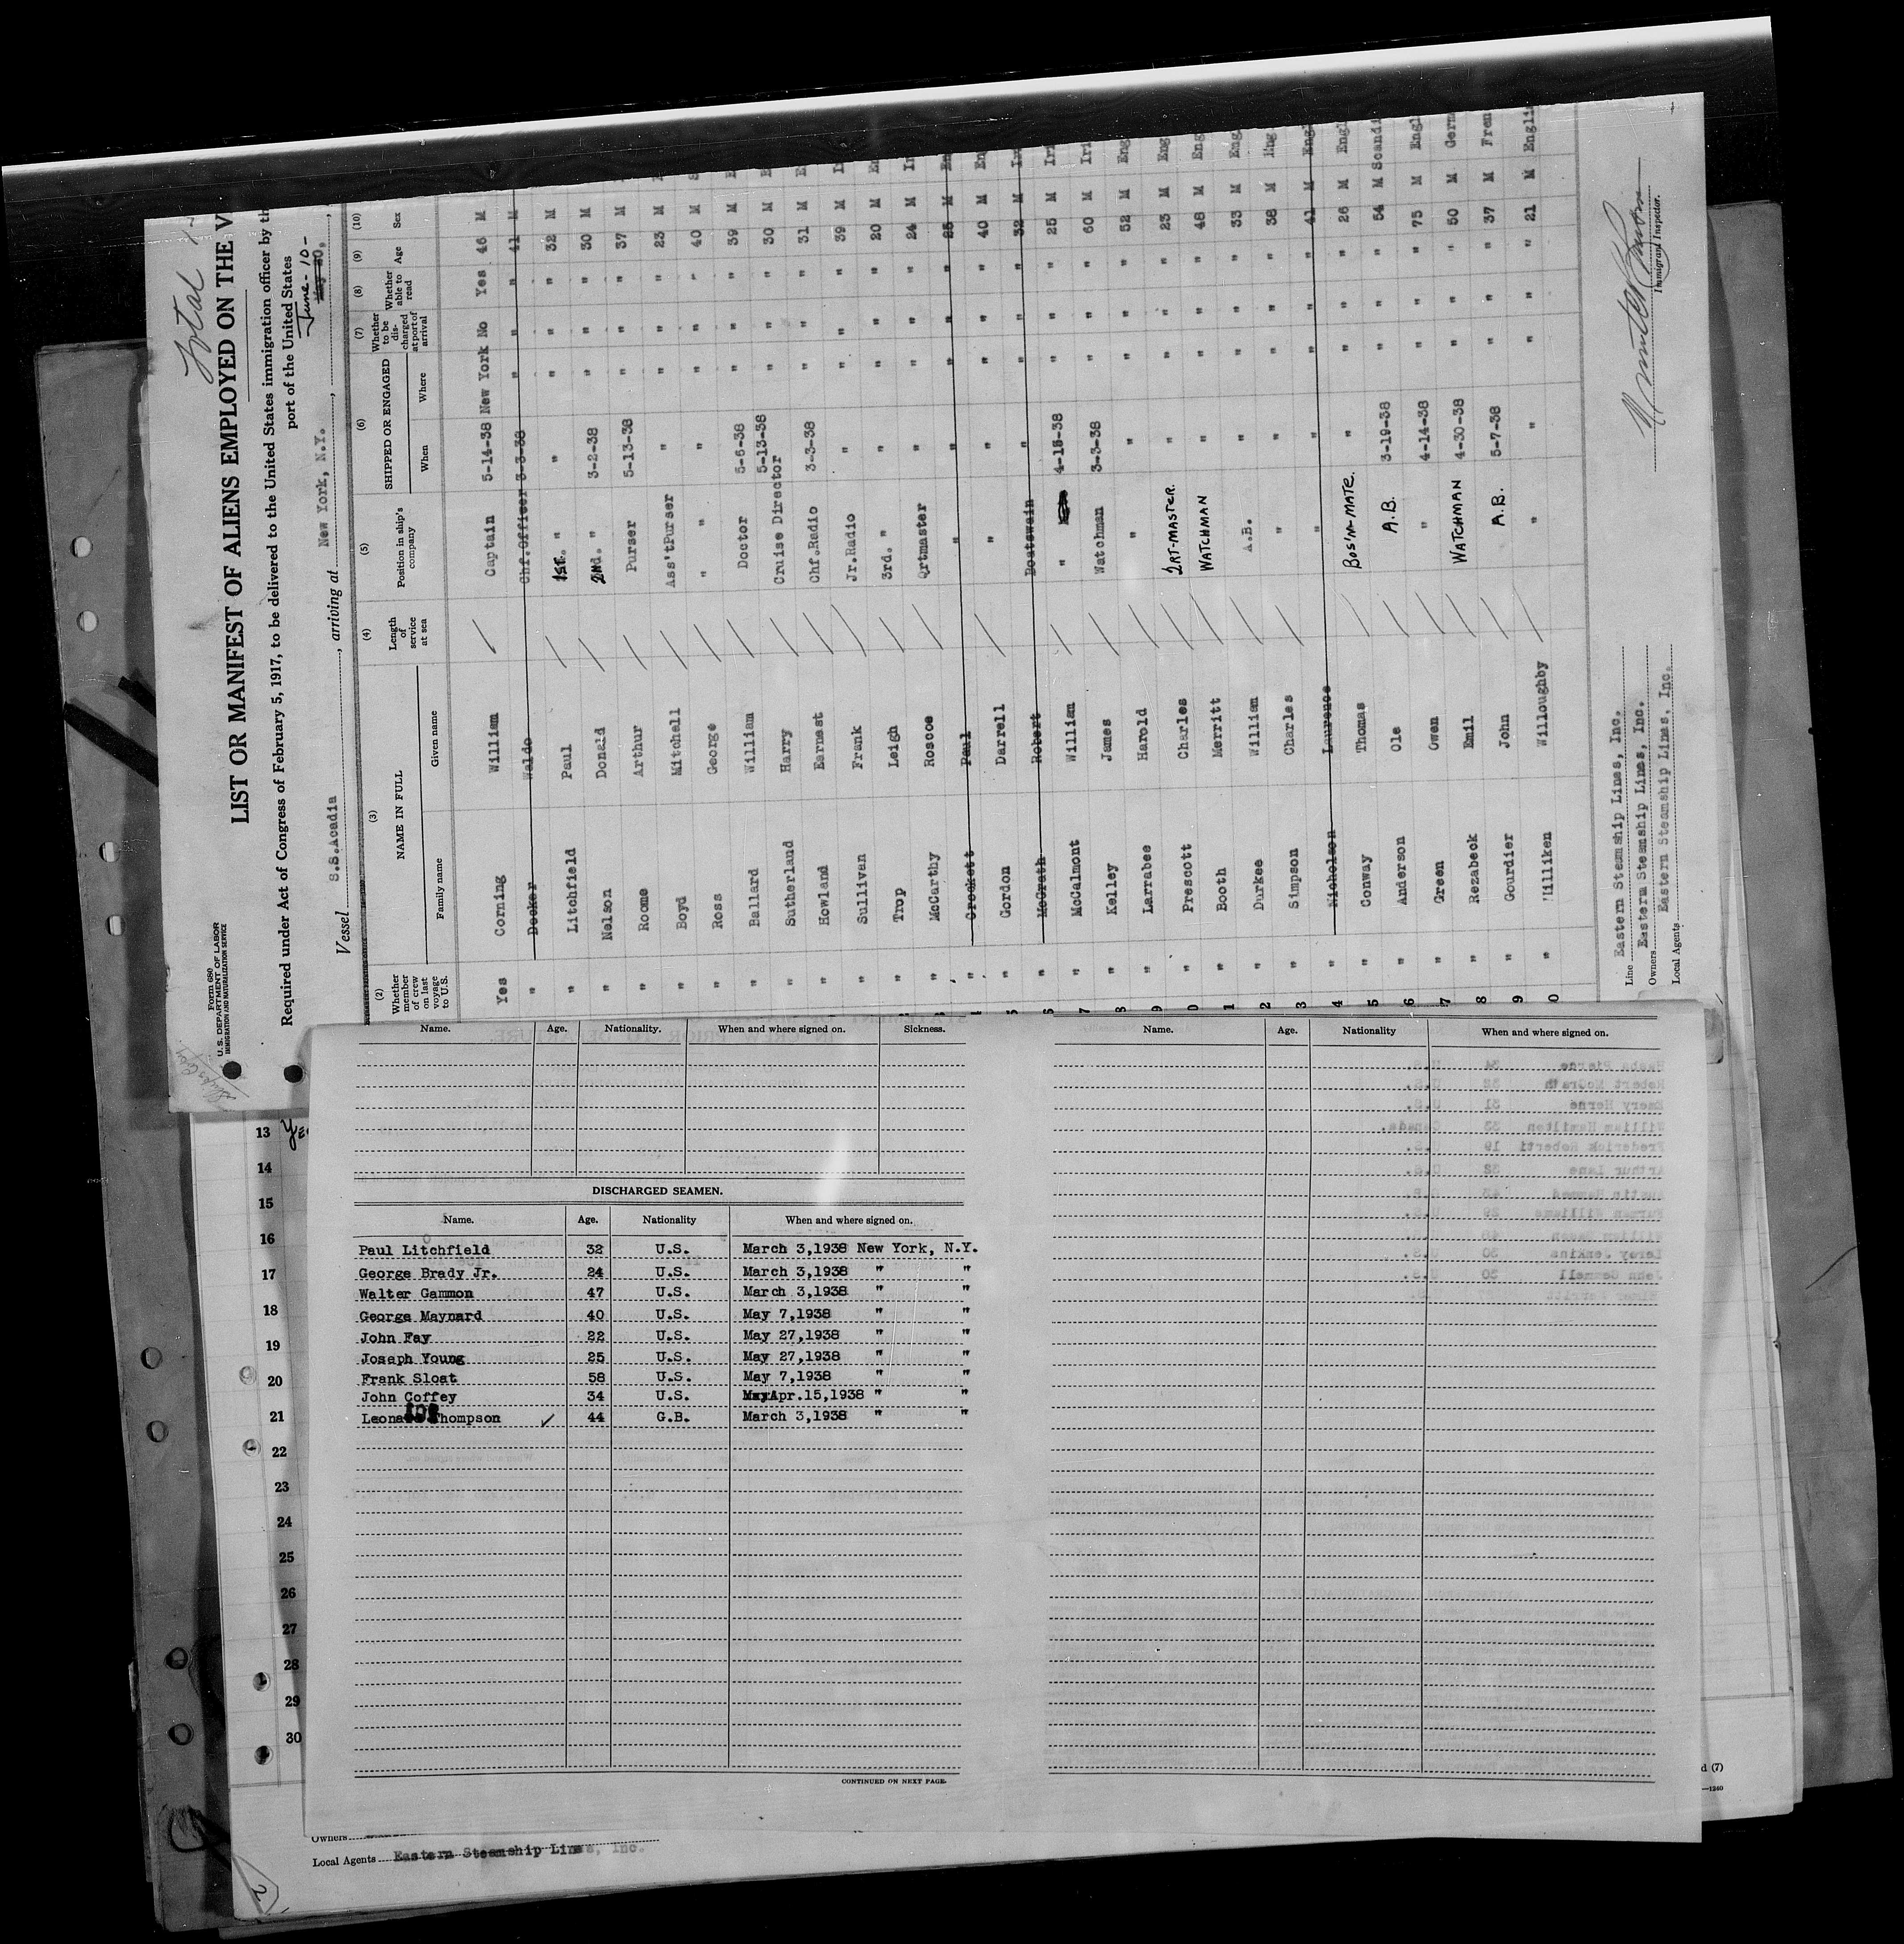 Total
Form 680
U. S. DEPARTMENT OF LABOR
IMMIGRATION AND NATURALIZATION SERVICE
LIST OR MANIFEST OF ALIENS EMPLOYED ON THE V
Required under Act of Congress of February 5, 1917, to be delivered to the United States immigration officer by th
port of the United States
Vessel S.S.Acadia, arriving at New York, N.Y., June-10-
(2) Whether member of crew on last voyage to U.S. (3) NAME IN FULL Family name Given name (4) Length of service at sea (5) Position in ship's company (6) SHIPPED OR ENGAGED When Where (7) Whether to be discharged at port of arrival (8) Whether able to read (9) Age (10) Sex
Yes Corning William Captain 5-14-38 New York No Yes 46 M
" Decker Waldo Chf.Officer 3-3-38 " " " 41 M
" Litchfield Paul 1st. " " " " " 32 M
" Nelson Donald 2nd. " 3-2-38 " " " 30 M
" Roome Arthur Purser 5-13-38 " " " 37 M
" Boyd Mitchell Ass'tPurser " " " " 23 M
" Ross George " " " " " 40 M
" Ballard William Doctor 5-6-38 " " " 39 M
" Sutherland Harry Cruise Director 5-13-38 " " " 30 M
" Howland Earnest Chf.Radio 3-3-38 " " " 31 M
" Sullivan Frank Jr.Radio " " " " 39 M
" Trop Leigh 3rd. " " " " " 20 M
" McCarthy Roscoe Qrtmaster " " " " 24 M
" Crockett Paul " " " " " 25 M
" Gordon Darrell " " " " " 40 M
" McGrath Robert Boatswain " " " " 32 M
" McCalmont William " 4-15-38 " " " 25 M Iri
" Kelley James Watchman 3-3-38 " " " 60 M Iri
" Larrabee Harold " " " " " 52 M Eng
" Prescott Charles QRT-MASTER. " " " " 23 M Eng
" Booth Merritt WATCHMAN " " " " 48 M Eng
" Durkee William A.B. " " " " 33 M Eng
" Simpson Charles " " " " " 38 M Eng
" Nicholson Laurence " " " " " 41 M Eng
" Conway Thomas BOS'N-MATE. " " " " 26 M Engl
" Anderson Ole A.B. 3-19-38 " " " 54 M Scandi
" Green Owen " 4-14-38 " " " 75 M Engl
" Rezabeck Emil WATCHMAN 4-30-38 " " " 50 M Germ
" Gourdier John A.B. 5-7-38 " " " 37 M Fren
" Milliken Willoughby " " " " " 21 M Engli
Line Eastern Steamship Lines, Inc.
Owners Eastern Steamship Lines, Inc.
Local Agents Eastern Steamship Lins, Inc.
Immigrant Inspector.
Name. Age. Nationality. When and where signed on. Sickness.
DISCHARGED SEAMEN.
Name. Age. Nationality When and where signed on.
Paul Litchfield 32 U.S. March 3,1938 New York, N.Y.
George Brady Jr. 24 U.S. March 3,1938 " "
Walter Gammon 47 U.S. March 3,1938 " "
George Maynard 40 U.S. May 7,1938 " "
John Fay 22 U.S. May 27,1938 " "
Joseph Young 25 U.S. May 27,1938 " "
Frank Sloat 58 U.S. May 7,1938 " "
John Coffey 34 U.S. Apr.15,1938 " "
Thompson ✓ 44 G.B. March 3,1938 " "
CONTINUED ON NEXT PAGE.
Name. Age. Nationality When and where signed on.
13
14
15
16
17
18
19
20
21
22
23
24
25
26
27
28
29
30
d (7)
—1240
Owners
Local Agents Eastern Steamship Lines, Inc.
2